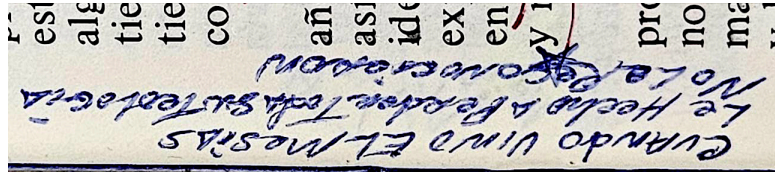 est
alg
tie
tie
co
añ
asi
ide
ex
en
y n
pro
no
ma
CUANDO VINO EL MESIAS
Le Hecho a Perder Toda su Teologia
No Le Reconocieron